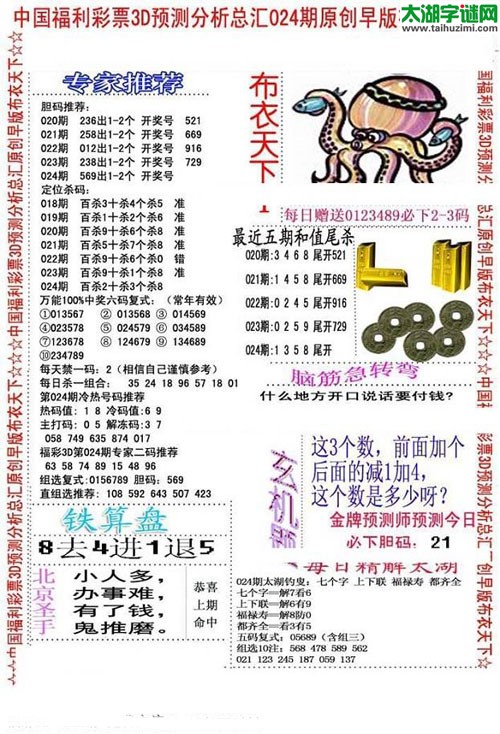 太湖字谜网
www.taihuzimi.com
中国福利彩票3D预测分析总汇024期原创早版
专家推荐
胆码推荐:
020期 236出1-2个 开奖号 521
021期 258出1-2个 开奖号 669
022期 012出1-2个 开奖号 916
023期 238出1-2个 开奖号 729
024期 569出1-2个 开奖号
定位杀码:
018期 百杀3十杀4个杀5 准
019期 百杀8十杀1个杀8 准
020期 百杀4十杀4个杀6 准
021期 百杀9十杀4个杀6 准
022期 百杀9十杀6个杀0 错
023期 百杀9十杀1个杀8 准
024期 百杀2十杀3个杀8
万能100%中奖六码复式: (常年有效)
①013567 ② 013568 ③ 014569
④023578 ⑤ 024579 ⑥ 034589
⑦123678 ⑧ 124679 ⑨ 134689
⑩234789
每天禁一码: 2 (相信自己谨慎参考)
每日杀一组合: 35 24 18 96 57 18 01
第024期冷热号码推荐
热码值: 1 8 冷码值: 6 9
主打码: 0 5 解冻码: 3 7
058 749 635 874 017
福彩3D第024期专家二码推荐
63 58 74 89 15 48 96
组选复式: 0156789 胆码: 569
直组选推荐: 108 592 643 507 423
铁算盘
8去4进1退5
北京圣手
小人多,
办事难,
有了钱,
鬼推磨。
恭喜
上期
命中
布衣天下
每日赠送0123489必下2-3码
最近五期和值尾杀
020期:3 4 6 8 尾开521
021期:1 4 5 8 尾开669
022期:0 2 4 5 尾开916
023期:0 2 5 9 尾开729
024期:1 3 5 8 尾开
脑筋急转弯
什么地方开口说话要付钱?
玄机
这3个数，前面加个
后面的减1加4,
这个数是多少呀?
金牌预测师预测今日
必下胆码: 21
每日精解太湖
024期太湖钓叟: 七个字 上下联 福禄寿 都齐全
七个字==解7看6
上下联==解6有9
福禄寿==解8防0
都齐全==看3有5
五码复式: 05689 (含组三)
组选10注: 568 478 589 562
021 123 245 187 059 137
☆☆☆中国福利彩票3D预测分析总汇原创早版布衣天下☆☆☆